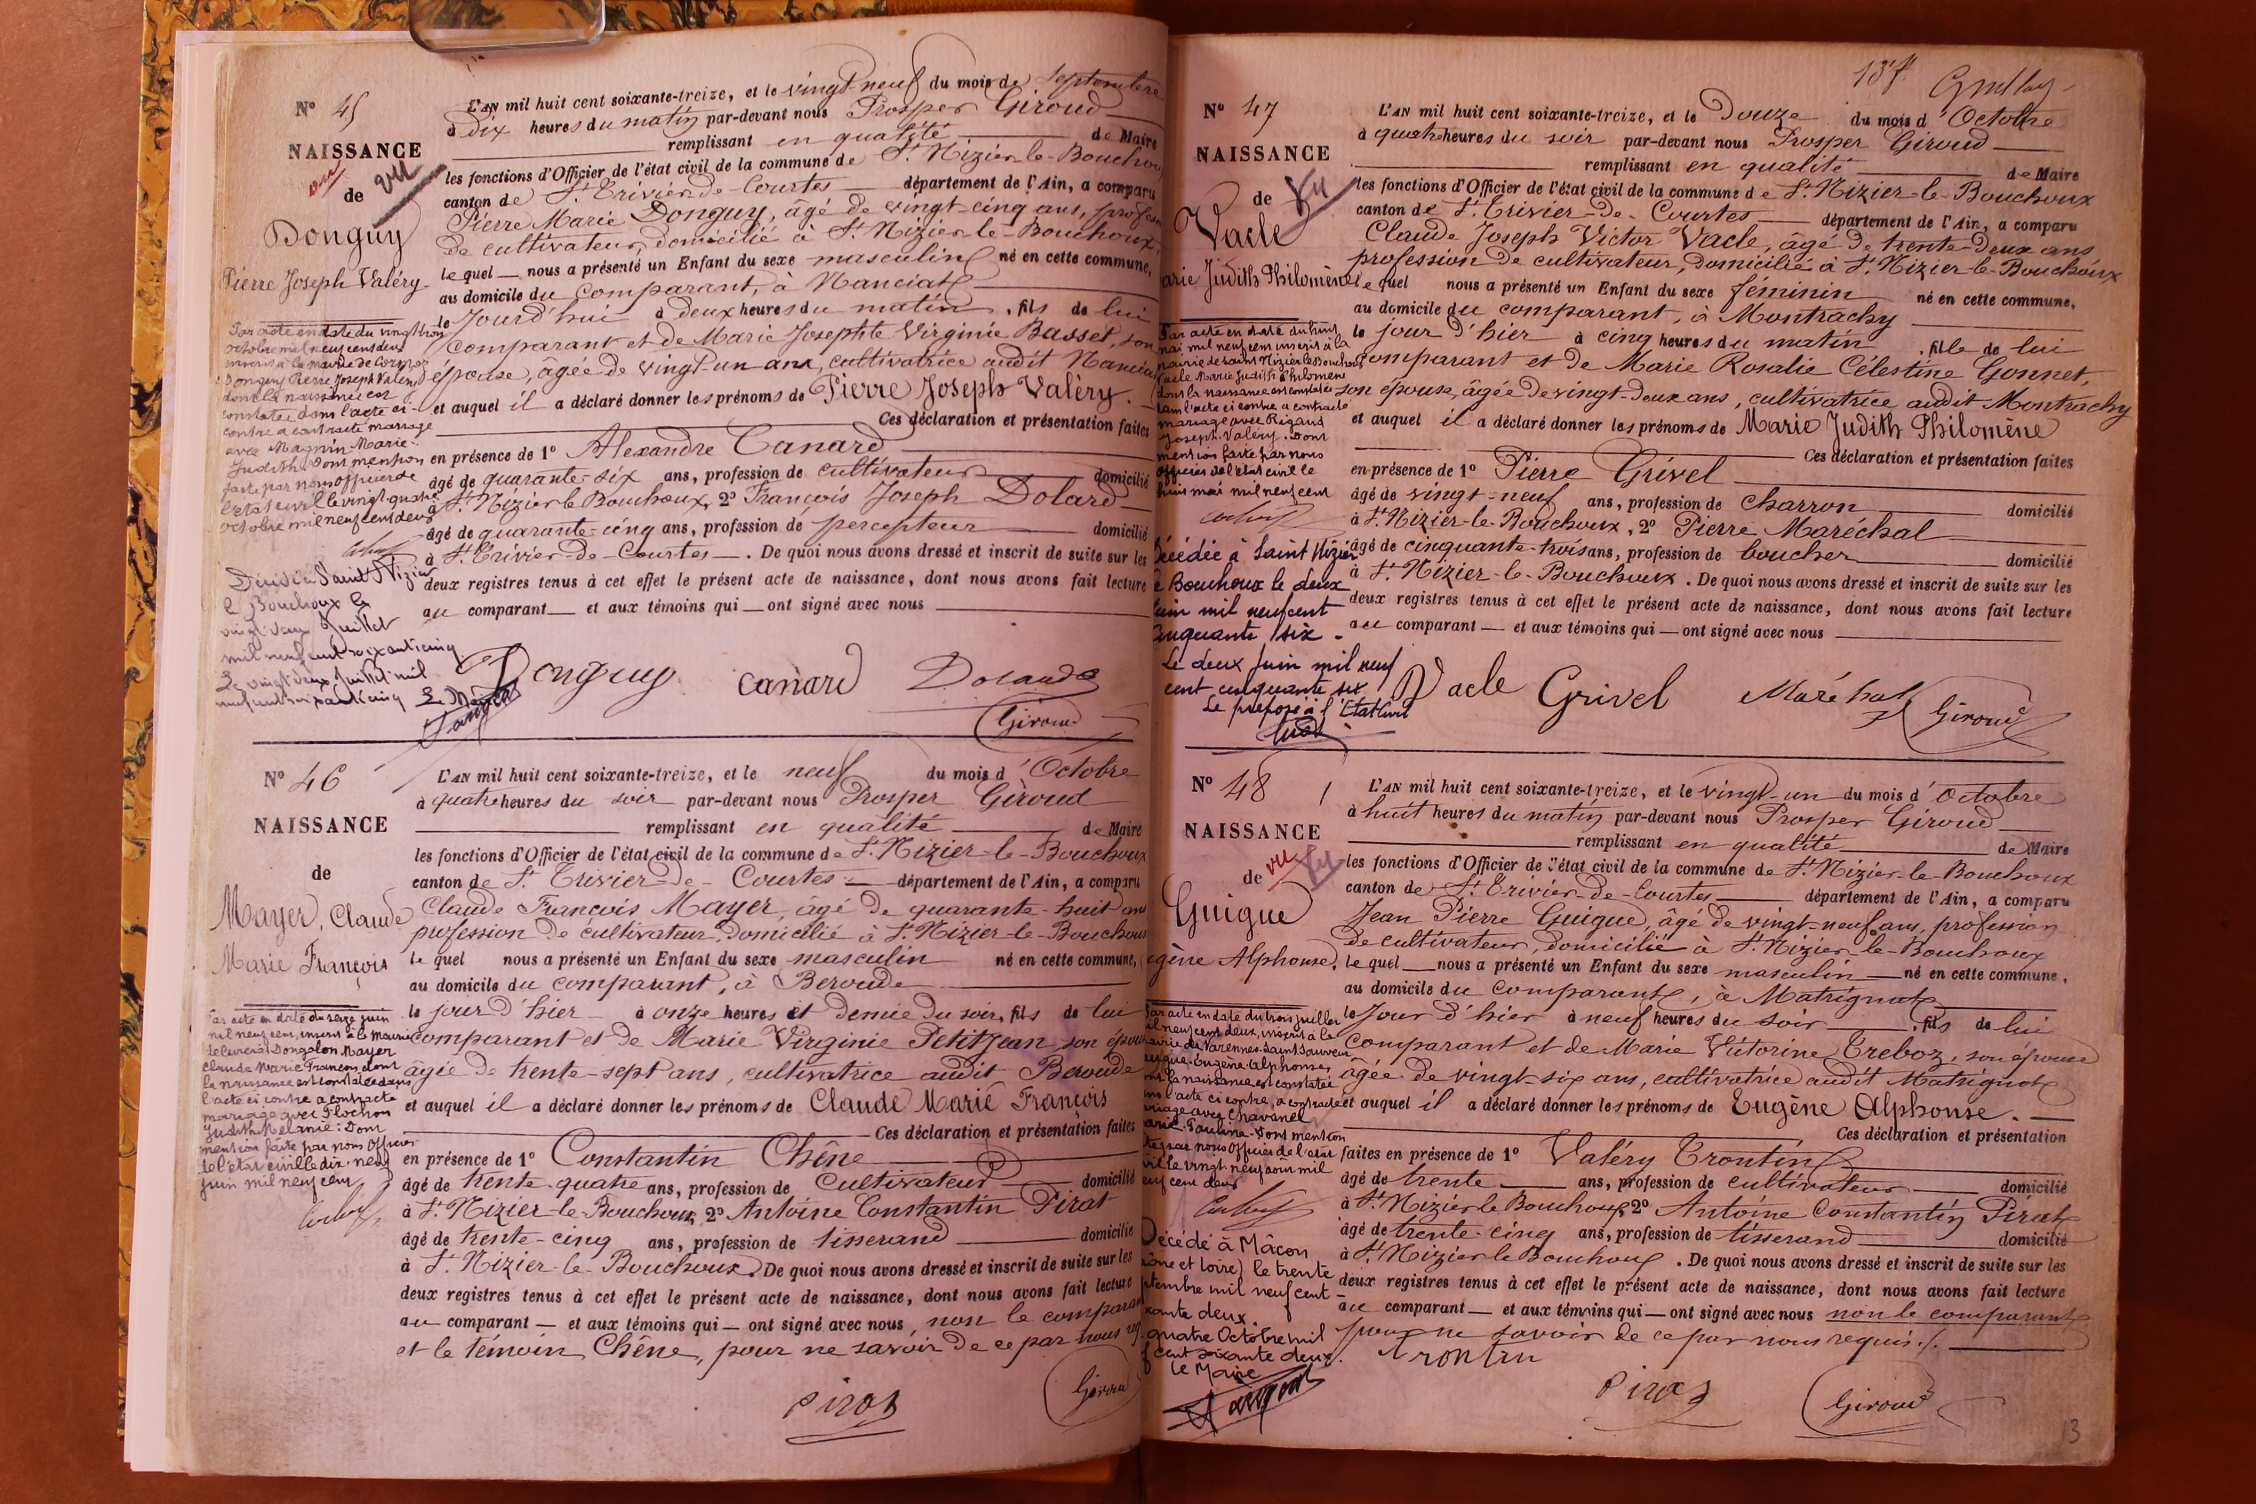 N° 45
NAISSANCE
de
vu
Donguy
Pierre Joseph Valéry
L'AN mil huit cent soixante-treize, et le vingt-neuf du mois de Septembre
à dix heures du matin par-devant nous Prosper Giroud
remplissant en qualité de Maire
les fonctions d'Officier de l'état civil de la commune de St Nizier-le-Bouchoux
canton de St Trivier-de-Courtes département de l'Ain, a comparu
Pierre Marie Donguy, âgé de vingt-cinq ans, profession
de cultivateur, domicilié à St Nizier-le-Bouchoux,
le quel nous a présenté un Enfant du sexe masculin né en cette commune,
au domicile du comparant, à Nanciat
le Jourd'hui à deux heures du matin, fils de lui
comparant et de Marie Josephte Virginie Basset, son
épouse, âgée de vingt-un ans, cultivatrice audit Nanciat
et auquel il a déclaré donner les prénoms de Pierre Joseph Valéry.
Ces déclaration et présentation faites
en présence de 1° Alexandre Canard
âgé de quarante-six ans, profession de cultivateur domicilié
à St Nizier-le-Bouchoux, 2° François Joseph Dolard
âgé de quarante-cinq ans, profession de percepteur domicilié
à St Trivier-de-Courtes. De quoi nous avons dressé et inscrit de suite sur les
deux registres tenus à cet effet le présent acte de naissance, dont nous avons fait lecture
au comparant et aux témoins qui ont signé avec nous
Donguy Canard Dolard
Giroud
Par acte en date du vingt trois
octobre mil neuf cent deux
inscrit à la mairie de
Donguy Pierre Joseph Valéry
dont la naissance est
constatée dans l'acte ci-
contre a contracté mariage
avec Magnin Marie
Judith. Dont mention
faite par nous officier de
l'état civil le vingt quatre
octobre mil neuf cent deux
Décédé à Saint Nizier
le Bouchoux le
vingt deux Juillet
mil neuf cent soixante cinq.
Le vingt deux Juillet mil
neuf cent soixante cinq Le Maire
N° 46
NAISSANCE
de
Mayer, Claude
Marie François
L'AN mil huit cent soixante-treize, et le neuf du mois d'Octobre
à quatre heures du soir par-devant nous Prosper Giroud
remplissant en qualité de Maire
les fonctions d'Officier de l'état civil de la commune de St Nizier-le-Bouchoux
canton de St Trivier-de-Courtes département de l'Ain, a comparu
Claude François Mayer, âgé de quarante-huit ans
profession de cultivateur, domicilié à St Nizier-le-Bouchoux
le quel nous a présenté un Enfant du sexe masculin né en cette commune,
au domicile du comparant, à Beroude
le jour d'hier à onze heures et demie du soir, fils de lui
comparant et de Marie Virginie Petitjean son épouse
âgée de trente-sept ans, cultivatrice audit Beroude
et auquel il a déclaré donner les prénoms de Claude Marie François
Ces déclaration et présentation faites
en présence de 1° Constantin Chêne
âgé de trente-quatre ans, profession de cultivateur domicilié
à St Nizier-le-Bouchoux, 2° Antoine Constantin Pirat
âgé de trente-cinq ans, profession de tisserand domicilié
à St Nizier-le-Bouchoux. De quoi nous avons dressé et inscrit de suite sur les
deux registres tenus à cet effet le présent acte de naissance, dont nous avons fait lecture
au comparant et aux témoins qui ont signé avec nous, non le comparant
et le témoin Chêne, pour ne savoir de ce par nous
Pirat
Giroud
Par acte en date du seize juin
mil neuf cent, inscrit à la mairie
de Dongalon, Mayer
Claude Marie François, dont
la naissance est constatée dans
l'acte ci contre a contracté
mariage avec Flochon
Judith Mélanie: Dont
mention faite par nous officier
de l'état civil le dix-neuf
juin mil neuf cent
137
N° 47
NAISSANCE
de
Vu
Vacle
Marie Judith Philomène
L'AN mil huit cent soixante-treize, et le Douze du mois d'Octobre
à quatre heures du soir par-devant nous Prosper Giroud
remplissant en qualité de Maire
les fonctions d'Officier de l'état civil de la commune de St Nizier-le-Bouchoux
canton de St Trivier-de-Courtes département de l'Ain, a comparu
Claude Joseph Victor Vacle, âgé de trente-deux ans
profession de cultivateur, domicilié à St Nizier-le-Bouchoux
le quel nous a présenté un Enfant du sexe féminin né en cette commune,
au domicile du comparant, à Montrachy
le jour d'hier à cinq heures du matin, fille de lui
comparant et de Marie Rosalie Célestine Gonnet,
son épouse, âgée de vingt-deux ans, cultivatrice audit Montrachy
et auquel il a déclaré donner les prénoms de Marie Judith Philomène
Ces déclaration et présentation faites
en présence de 1° Pierre Grivel
âgé de vingt-neuf ans, profession de charron domicilié
à St Nizier-le-Bouchoux, 2° Pierre Maréchal
âgé de cinquante-trois ans, profession de boucher domicilié
à St Nizier-le-Bouchoux. De quoi nous avons dressé et inscrit de suite sur les
deux registres tenus à cet effet le présent acte de naissance, dont nous avons fait lecture
au comparant et aux témoins qui ont signé avec nous
Vacle Grivel Maréchal Giroud
Par acte en date du huit
mai mil neuf cent inscrit à la
mairie de Saint Nizier le Bouchoux
Vacle Marie Judith Philomène
dont la naissance est constatée
dans l'acte ci contre a contracté
mariage avec Rigaud
Joseph Valéry. Dont
mention faite par nous
officier de l'état civil le
huit mai mil neuf cent
Décédée à Saint Nizier
le Bouchoux le deux
Juin mil neuf cent
cinquante six.
Le deux Juin mil neuf
cent cinquante six
Le préposé à l'Etat Civil
N° 48
NAISSANCE
de
vu
Vu
Guigue
Eugène Alphonse.
L'AN mil huit cent soixante-treize, et le vingt-un du mois d'Octobre
à huit heures du matin par-devant nous Prosper Giroud
remplissant en qualité de Maire
les fonctions d'Officier de l'état civil de la commune de St Nizier-le-Bouchoux
canton de St Trivier-de-Courtes département de l'Ain, a comparu
Jean Pierre Guigue, âgé de vingt-neuf ans, profession
de cultivateur, domicilié à St Nizier-le-Bouchoux
le quel nous a présenté un Enfant du sexe masculin né en cette commune,
au domicile du comparant, à Matrignat
le Jour d'hier à neuf heures du soir, fils de lui
comparant et de Marie Victorine Treboz, son épouse
âgée de vingt-six ans, cultivatrice audit Matrignat
et auquel il a déclaré donner les prénoms de Eugène Alphonse.
Ces déclaration et présentation
faites en présence de 1° Valéry Trontin
âgé de trente ans, profession de cultivateur domicilié
à St Nizier le Bouchoux, 2° Antoine Constantin Pirat
âgé de trente-cinq ans, profession de tisserand domicilié
à St Nizier le Bouchoux. De quoi nous avons dressé et inscrit de suite sur les
deux registres tenus à cet effet le présent acte de naissance, dont nous avons fait lecture
au comparant et aux témoins qui ont signé avec nous non le comparant
pour ne savoir de ce par nous requis./.
Trontin
Pirat
Giroud
Par acte en date du trois juillet
mil neuf cent deux, inscrit à la
mairie de Varennes-Saint Sauveur
Guigue Eugène Alphonse,
dont la naissance est constatée
dans l'acte ci contre, a contracté
mariage avec Chavanel
Marie Pauline. Dont mention
faite par nous Officier de l'état
civil le vingt neuf août mil
neuf cent deux
Décédé à Mâcon
(Saône et Loire) le trente
septembre mil neuf cent
soixante deux.
quatre Octobre mil
neuf cent soixante deux.
Le Maire
13